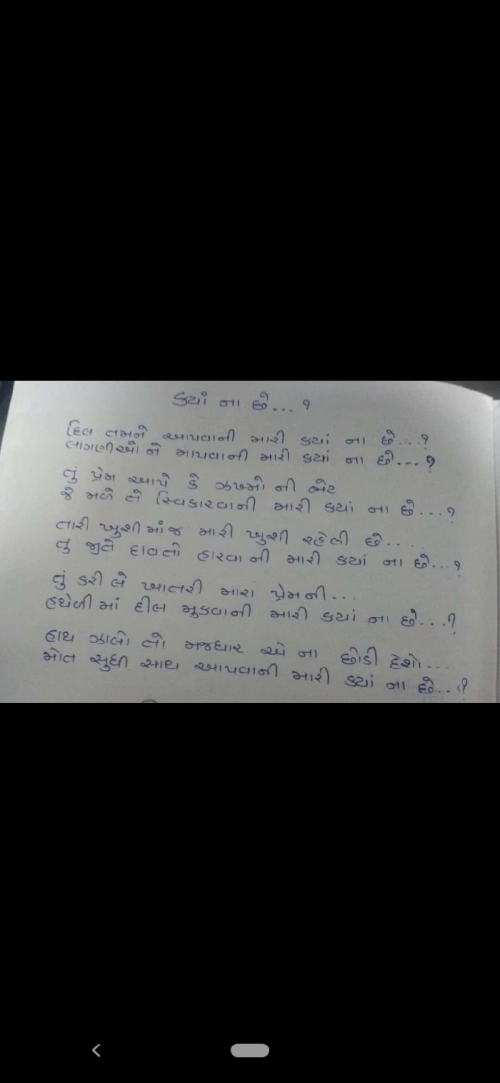 ક્યાં ના છે...?
દિલ તમને આપવાની મારી ક્યાં ના છે...?
લાગણીઓ ને માપવાની મારી ક્યાં ના છે...?
તું પ્રેમ આપે કે ઝખ્મો ની ભેટ
જે મળે તે સ્વિકારવાની મારી ક્યાં ના છે...?
તારી ખુશીમાંજ મારી ખુશી રહેલી છે...
તું જીતે દાવતો હારવાની મારી ક્યાં ના છે...?
તું કરી લે ખાતરી મારા પ્રેમની...
હથેળીમાં દીલ મૂકવાની મારી ક્યાં ના છે...?
હાથ ઝાલો તો મજધાર એ ના છોડી દેશો...
મોત સુધી સાથ આપવાની મારી ક્યાં ના છે...?